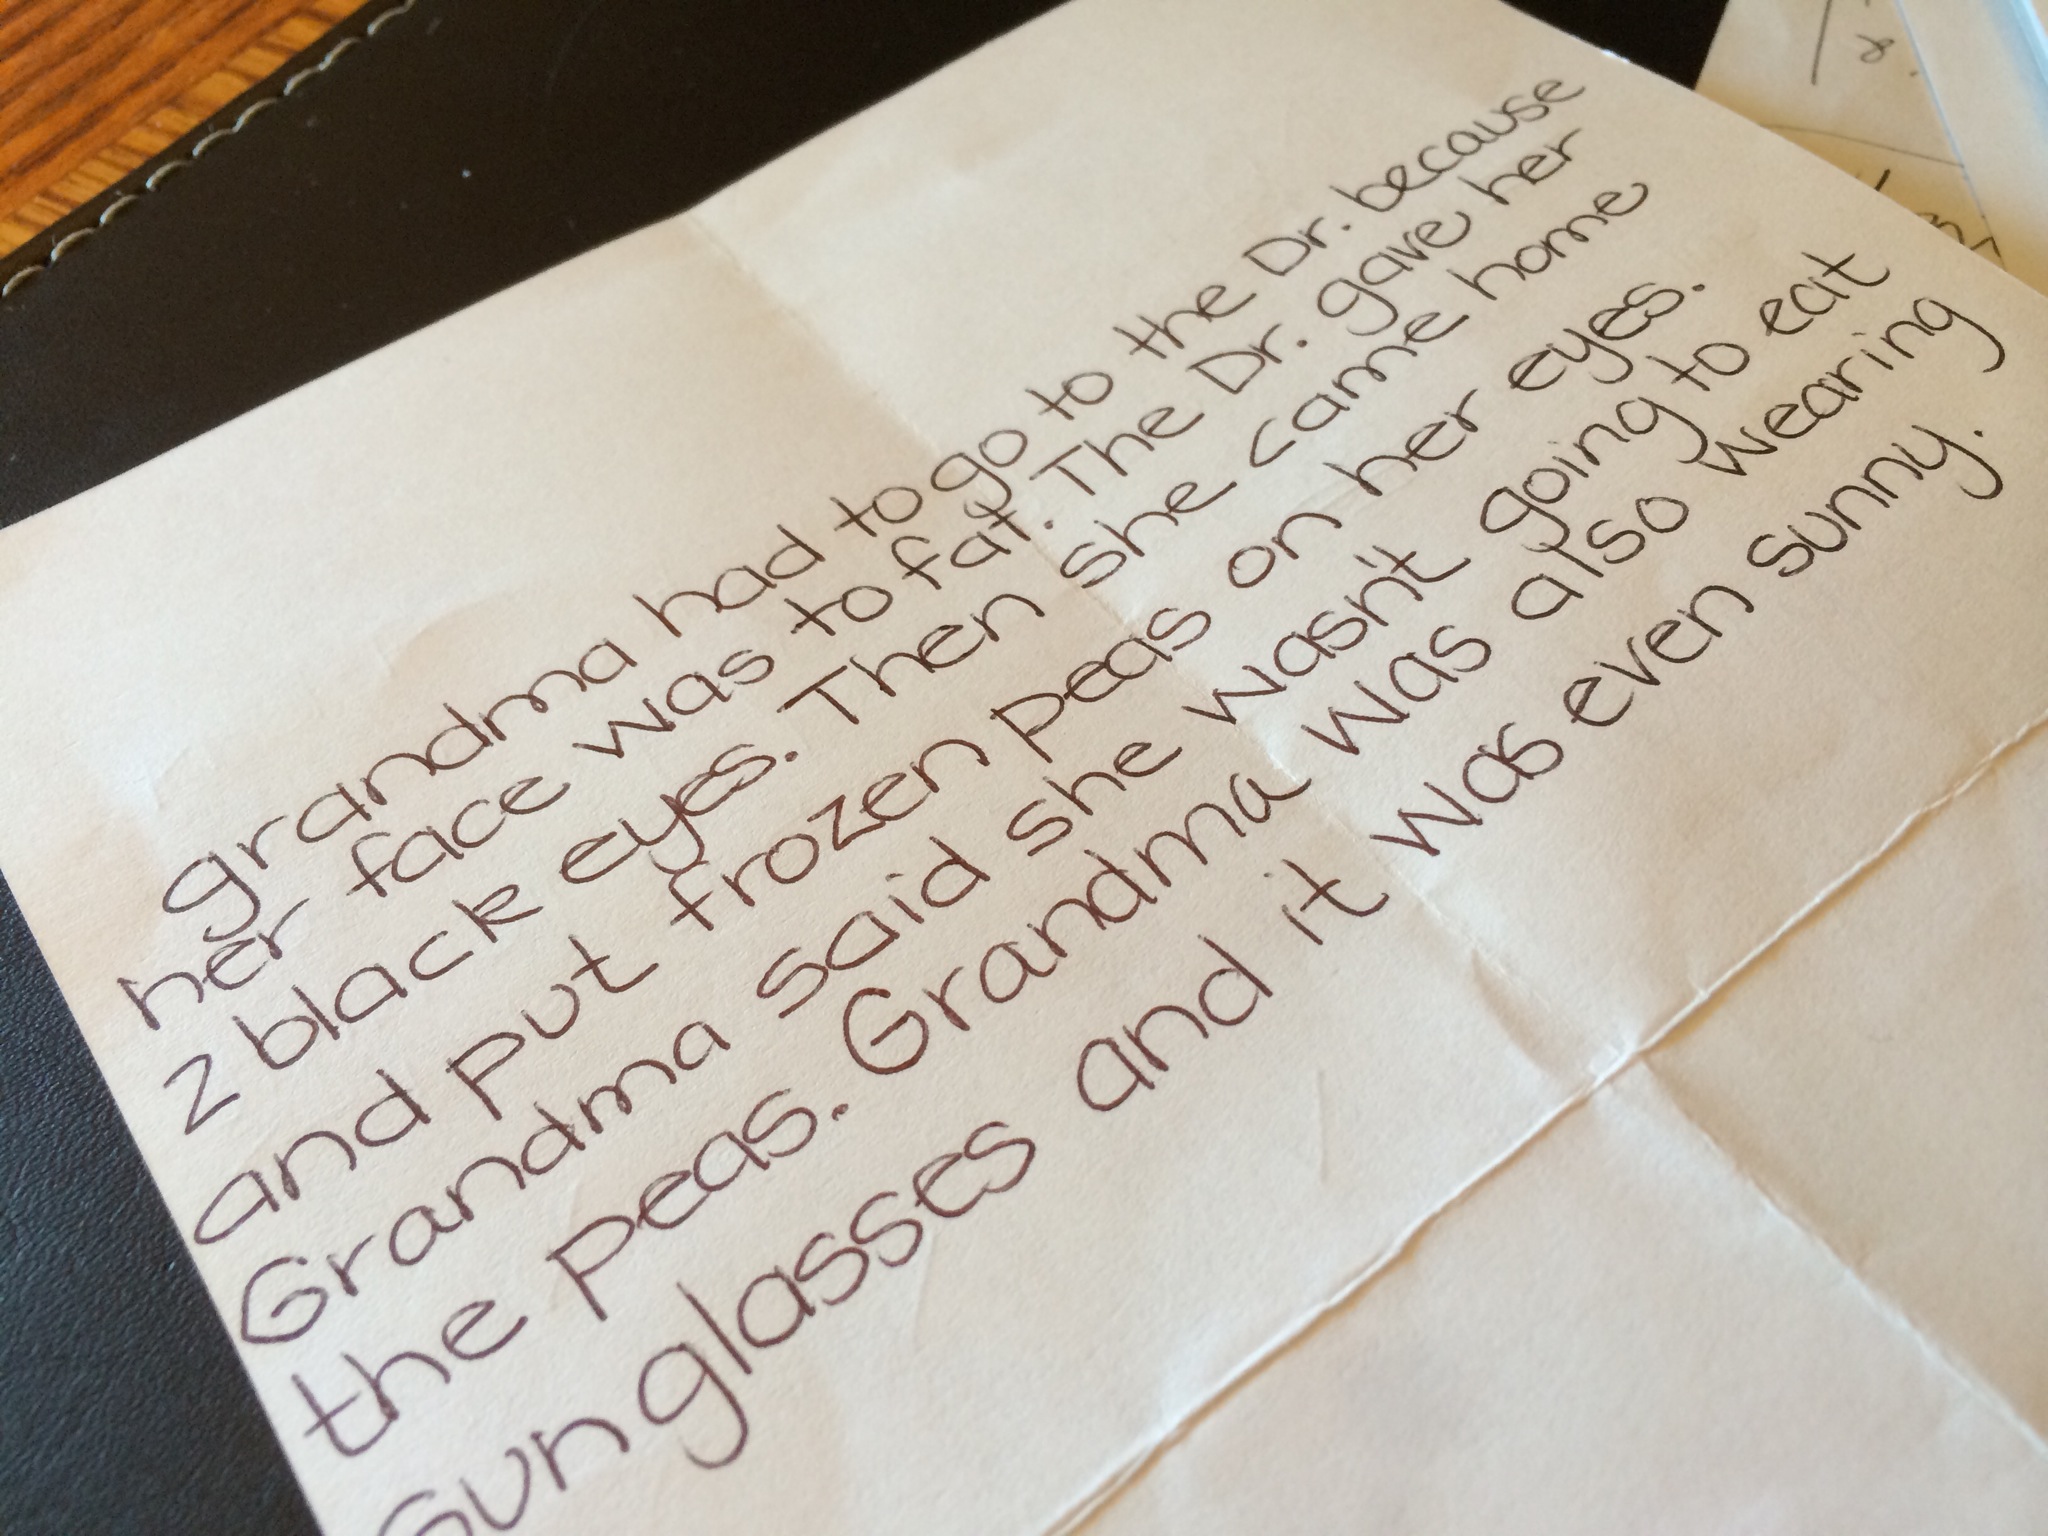 grandma had to go to the Dr. because
her face was to fat. The Dr. gave her
2 black eyes. Then she came home
and put frozen peas on her eyes.
Grandma said she wasn't going to eat
the peas. Grandma was also wearing
sunglasses and it was even sunny.